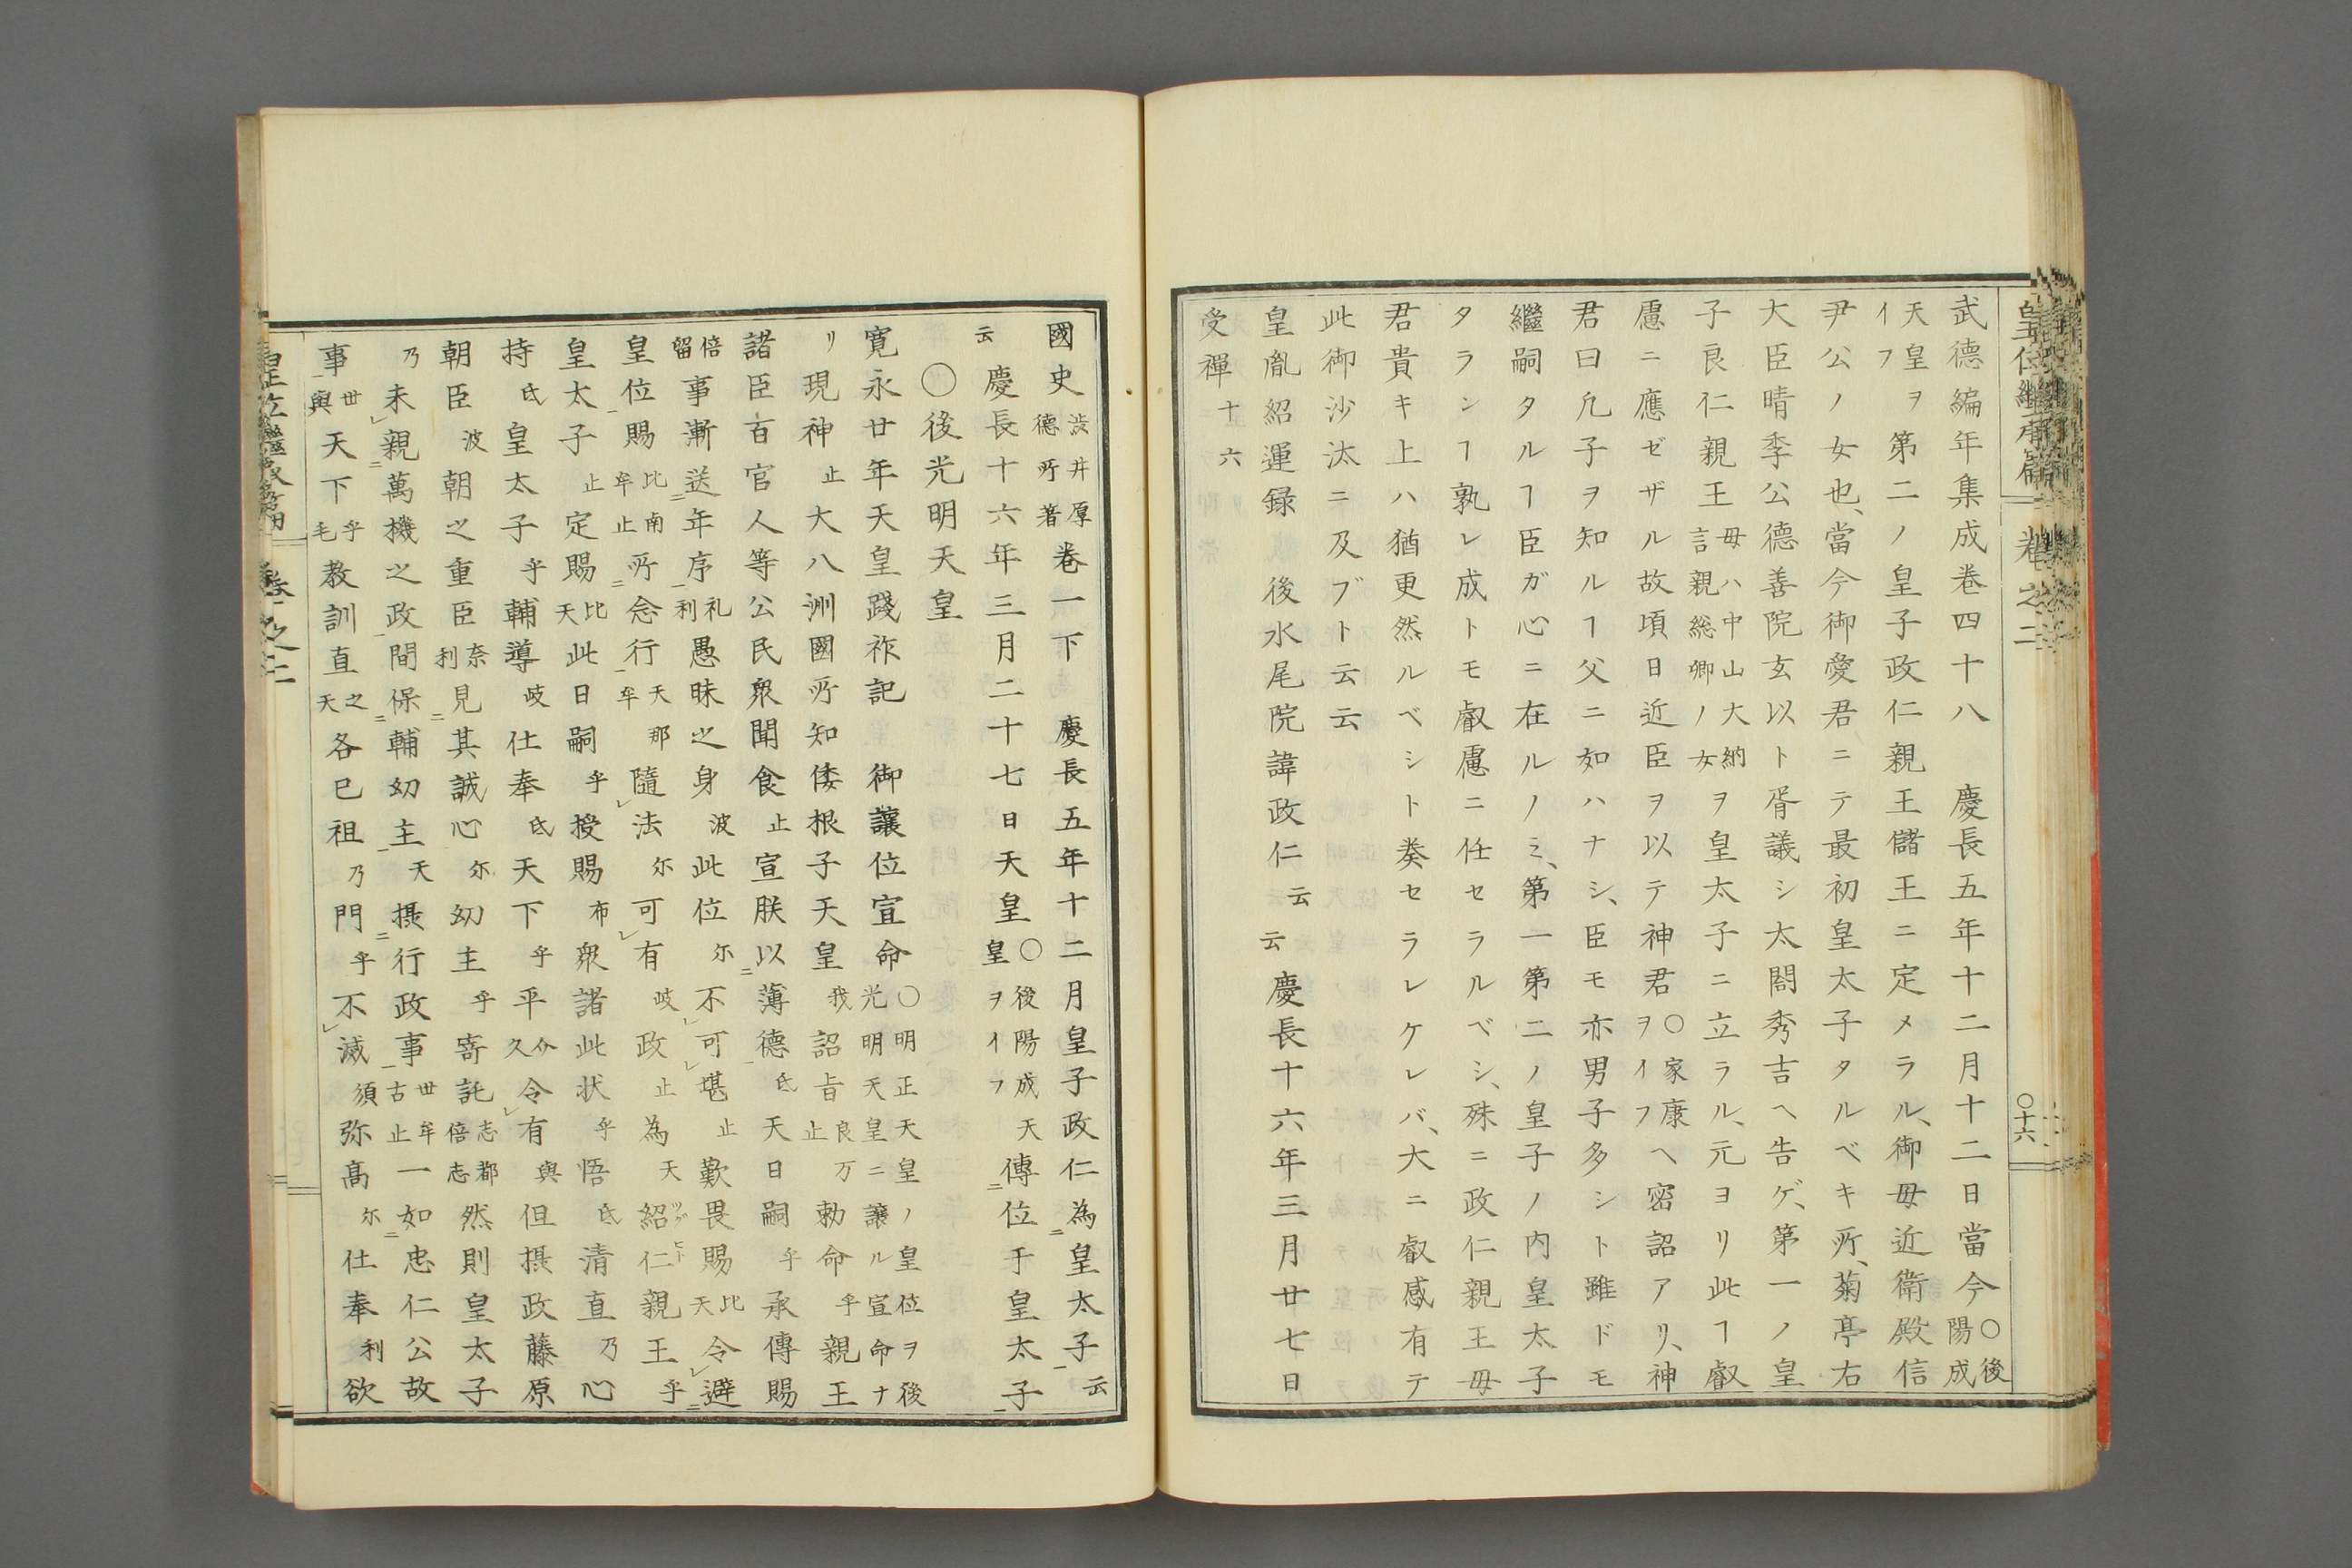 皇位繼承篇 巻之二 〇十六
武德編年集成卷四十八 慶長五年十二月十二日當今〇後陽成
天皇ヲイフ第二ノ皇子政仁親王儲王ニ定メラル、御母近衛殿信
尹公ノ女也、當今御愛君ニテ最初皇太子タルベキ所、菊亭右
大臣晴季公德善院玄以ト胥議シ太閤秀吉ヘ告ゲ、第一ノ皇
子良仁親王母ハ中山大納言親総卿ノ女ヲ皇太子ニ立ラル、元ヨリ此ヿ叡
慮ニ應ゼザル故頃日近臣ヲ以テ神君〇家康ヲイフヘ密詔アリ、神
君曰凢子ヲ知ルヿ父ニ如ハナシ、臣モ亦男子多シト雖ドモ
繼嗣タルヿ臣ガ心ニ在ルノミ、第一第二ノ皇子ノ内皇太子
タランヿ孰レ成トモ叡慮ニ任セラルベシ、殊ニ政仁親王母
君貴キ上ハ猶更然ルベシト奏セラレケレバ、大ニ叡感有テ
此御沙汰ニ及ブト云云
皇胤紹運録 後水尾院諱政仁云云慶長十六年三月廿七日
受禪十六
國史澁井德所原著卷一下 慶長五年十二月皇子政仁為皇太子云
云慶長十六年三月二十七日天皇〇後陽成天皇ヲイフ傳位于皇太子
〇後光明天皇
寛永廿年天皇踐祚記 御讓位宣命〇明正天皇ノ皇位ヲ後光明天皇ニ讓ル宣命ナ
リ現神止大八洲國所知倭根子天皇我詔旨良万止勅命乎親王
諸臣百官人等公民衆聞食止宣朕以薄德氐天日嗣乎承傳賜
倍留事漸送年序礼利愚昧之身波此位尓不可堪止歎畏賜比天令避
皇位賜比南牟止所念行天那牟隨法尓可有岐政止為天紹仁親王乎
皇太子止定賜比天此日嗣乎授賜布衆諸此状乎悟氐清直乃心
持氐皇太子乎輔導岐仕奉氐天下乎平介久令有與但摂政藤原
朝臣波朝之重臣奈利見其誠心尓幼主乎寄託志都倍志然則皇太子
乃未親萬機之政間保輔幼主天摂行政事世牟古止一如忠仁公故
事世與天下乎毛教訓直之天各巳祖乃門乎不滅須弥高尓仕奉利欲
皇位繼承篇 卷之二